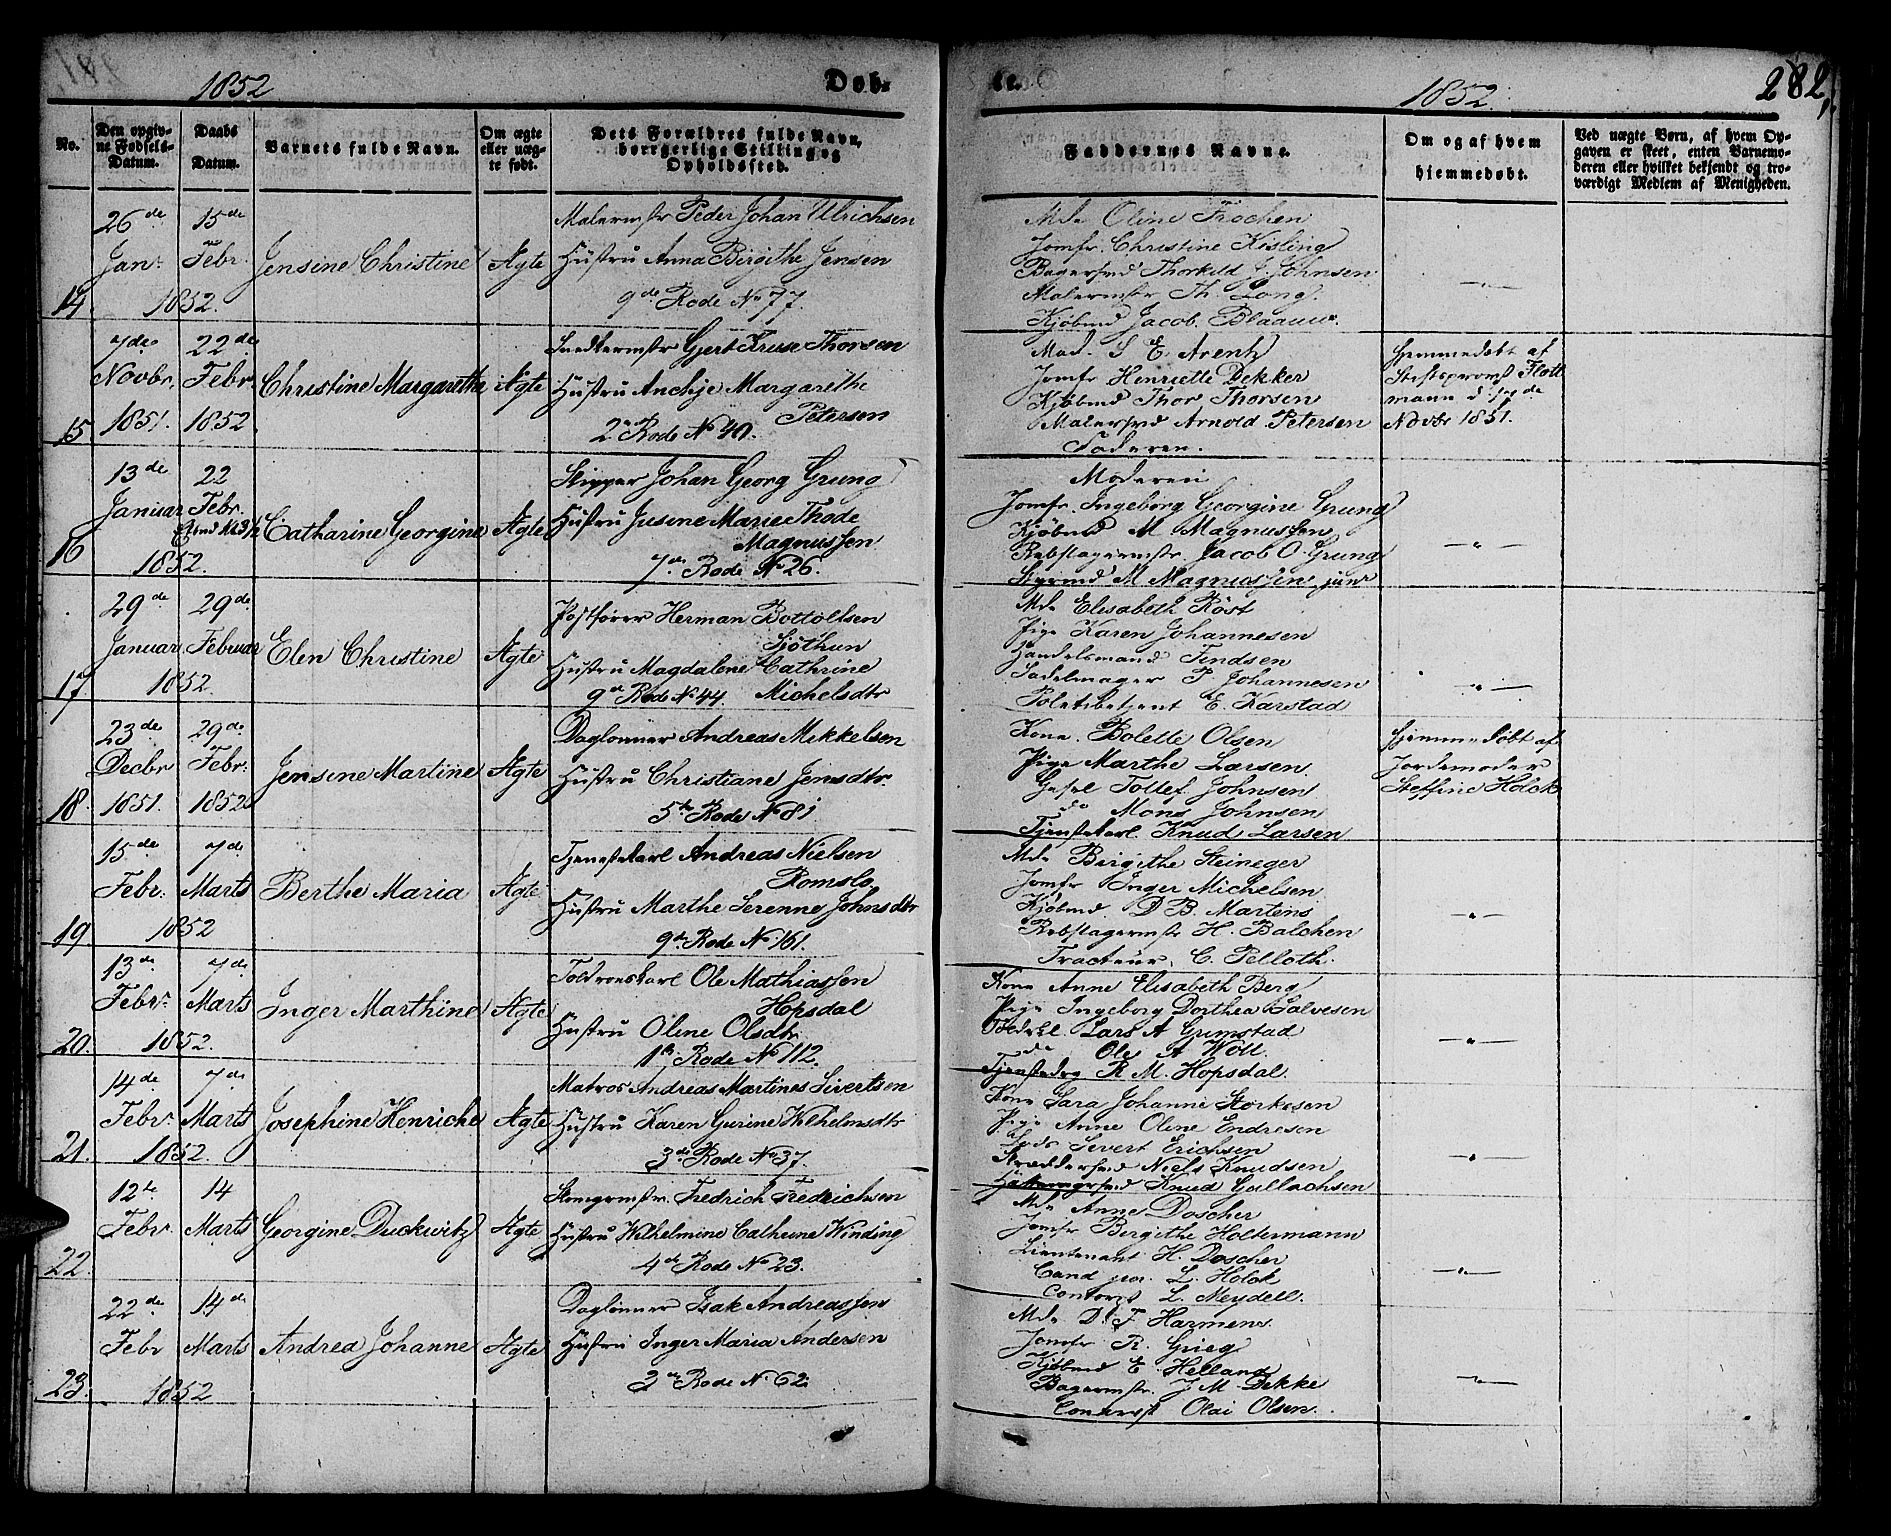 1852 Døb- te. 1852 282,
No.
Den opgiv-
ne Fødsels-
Datum.
Daabs
Datum.
Barnets fulde Navn.
Om ægte
eller uæg-
te født.
Dets Forældres fulde Navn,
borgerlige Stilling og
Opholdssted.
Faddernes Navne.
Om og af hvem
hjemmedøbt.
Ved uægte Børn, af hvem Op-
gaven er skeet, enten Barnemo-
deren eller hvilket bekjendt og tro-
værdigt Medlem af Menigheden.
14.
26de
Janr
15de
Febr.
1852.
Jensine Christine
Ægte
Malermstr Peder Johan Ulrichsen
Hustru Anna Birgithe Jensen
9de Rode No 77.
Mde Oline Trochen
Jomfr. Christine Kisling
Bagersvd Thorkild J. Johnsen
Malermstr Th. Long.
Kjøbmd Jacob. Blaauw.
—"—
15
7de
Novbr.
1851.
22de
Febr.
1852
Christine Margarethe
Ægte
Snedkermstr Gjert Kruse Thorsen
Hustru Anchje Margarethe
Petersen
2de Rode No 40.
Mad. S E. Arentz
Jomfr Henriette Dekker
Kjøbmd Thor Thorsen
Malersvd Arnold Petersen
Faderen.
Hjemmedøbt af
Stiftsprovst Flott
mann d
Novbr 1851.
16
13de
Januar
22
Febr.
1852.
Catharine Georgine
Ægte
Skipper Johan Georg Grung
Hustru Jusine Marie Thode
Magnussen
7de Rode No 26.
Moderen
Jomfr. Ingeborg Georgine Grung
Kjøbmd M Magnussen
Rebslagermstr Jacob O. Grung
Styrmd M Magnussen junr
—"—
17
29de
Januar
29de
Februar
1852.
Elen Christine
Ægte
Postfører Herman Bottolfsen
Sjøthun
Hustru Magdalene Cathrine
9de Rode No 44 Michelsdtr
Mde Elisabeth Röst
Pige Karen Johannesen
Handelsmand Findsen
Sadelmager T Johannesen
Politibetjent E. Karstad
—"—
18.
23de
Decbr
1851.
29de
Febr.
1852
Jensine Martine
Ægte
Daglønner Andreas Mikkelsen
Hustru Christiane Jensdtr.
5te Rode No 81
Kone Bolette Olsen
Pige Marthe Larsen.
Gesel Tollef Johnsen
do Mons Johnsen
Tjenstekarl. Knud Larsen
Hjemmedøbt af
Jordemoder
Steffine Holck
19
15de
Febr.
7de
Marts
1852
Berthe Maria
Ægte
Tjenestekarl Andreas Nielsen
Romslo
Hustru Marthe Serenne Johnsdtr
9de Rode No 161.
Mde Birgithe Steineger
Jomfr Inger Michelsen
Kjøbmd D B. Martens
Rebslagermstr H. Balchen
Tracteur, C. Pelloth.
—"—
20.
13de
Febr.
7de
Marts
1852.
Inger Marthine
Ægte
Toldroerskarl Ole Mathiassen
Hopsdal
Hustru Oline Olsdtr
1ste Rode No 112.
Kone Anne Elisabeth Berg
Pige Ingeborg Dorthea Salvesen
Lars A Grimstad
do Ole A Woll.
R M. Hopsdal.
—"—
21.
14de
Febr.
7de
Marts
1852.
Josephine Henricke
Ægte
Matros Andreas Martines Sivertsen
Hustru Karen Gurine Wilhelmsdtr
3de Rode No 37.
Kone Sara Johanne Storkesen
Pige Anne Oline Endresen
Sivert Erichsen
Skreddersvd Niels Knudsen
Knud Gullachsen
—"—
22.
12te
Febr.
14
Marts
Georgine Duckwitz
Ægte
Fredrich Fredrichsen
Hustru Wilhelmine Cathrine Winding
4de Rode No 23.
Mde Anne Doscher
Jomfr Birgithe Holtermann
Lieutenant H. Doscher
Cand L. Holck
Contorist L. Meydell.
—"—
23.
22de
Febr
14de
Marts
1852
Andrea Johanne
Ægte
Daglønner Isak Andreassen
Hustru Inger Maria Andersen
3de Rode No 62.
Mde D. F Harmens
Jomfr R. Grieg
Kjøbmd E. Helland
Bagermstr. J M. Dekke
Contorist Olai Olsen.
—"—